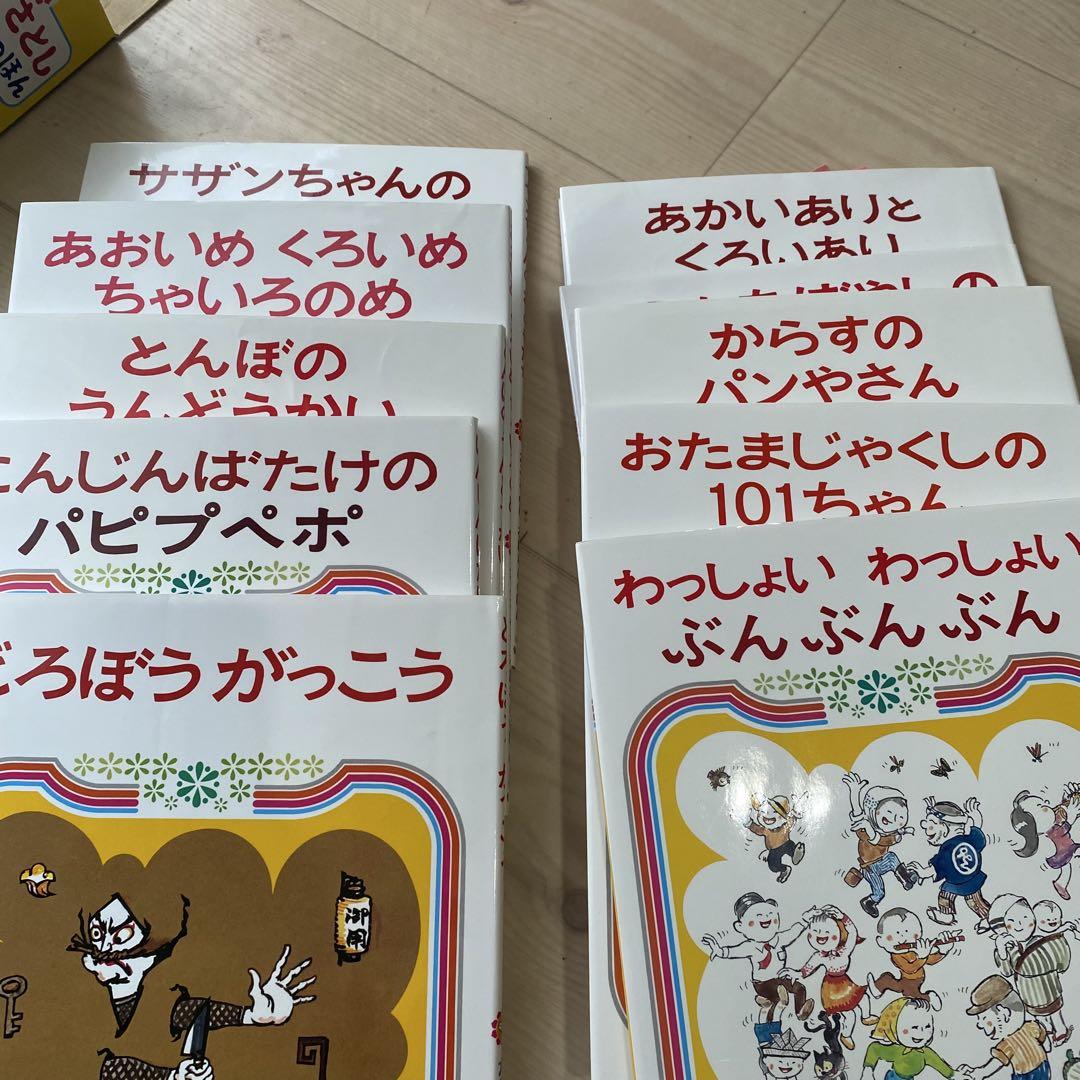 ざとし
のほん
サザンちゃんの
あおいめ くろいめ
ちゃいろのめ
とんぼの
うんどうかい
にんじんばたけの
パピプペポ
どろぼうがっこう
御用
あかいありと
くろいあり
からすの
パンやさん
おたまじゃくしの
101ちゃん
わっしょい わっしょい
ぶんぶんぶん